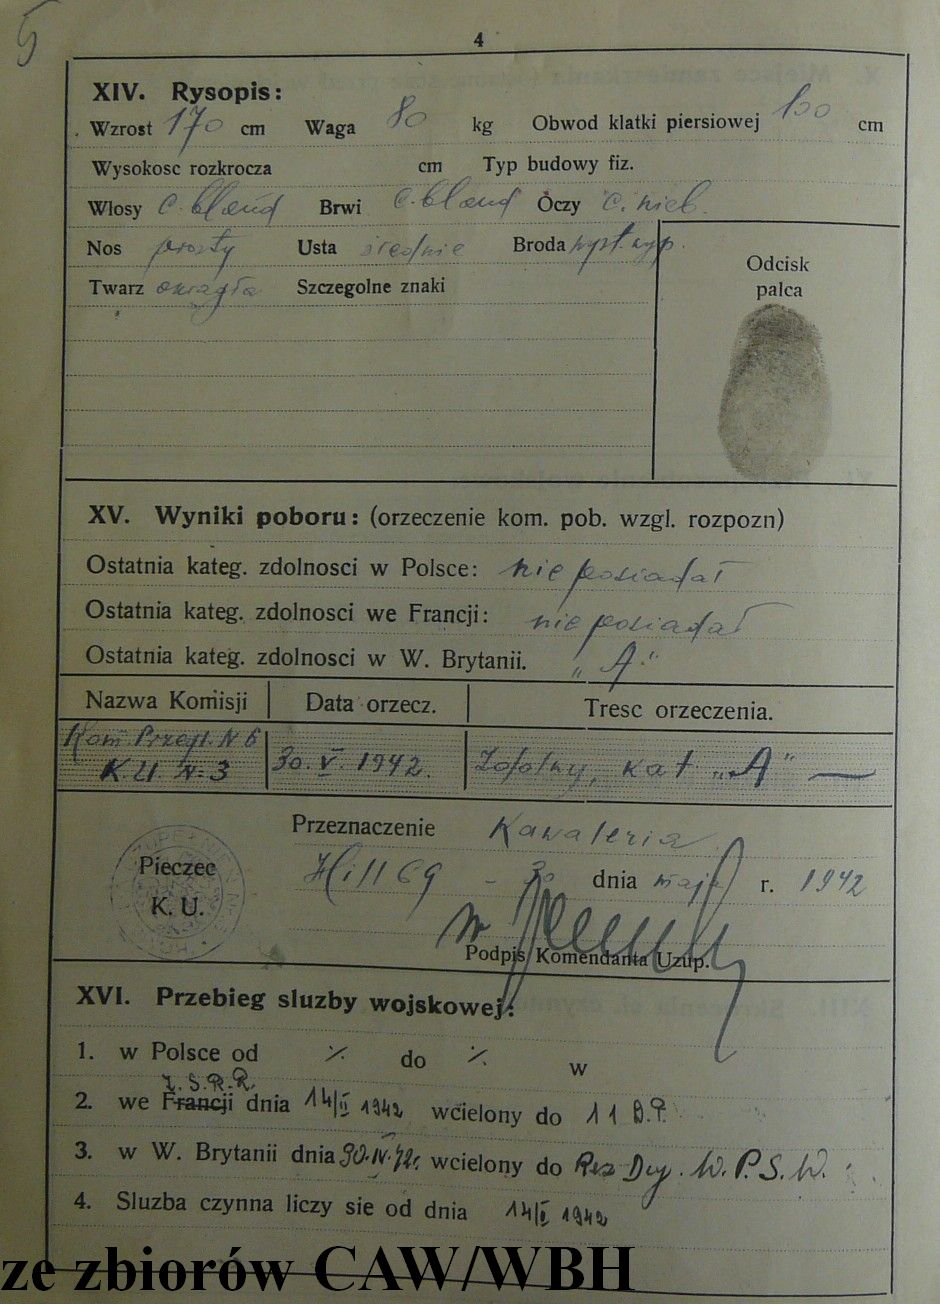 5
4
XIV. Rysopis:
Wzrost 170 cm Waga 80 kg Obwod klatki piersiowej 100 cm
Wysokosc rozkrocza cm Typ budowy fiz.
Wlosy c. blond Brwi c. blond Oczy c. nieb.
Nos prosty Usta średnie Broda
Twarz okrągła Szczegolne znaki
Odcisk
palca
XV. Wyniki poboru: (orzeczenie kom. pob. wzgl. rozpozn)
Ostatnia kateg. zdolnosci w Polsce: nie posiadał
Ostatnia kateg. zdolnosci we Francji: nie posiadał
Ostatnia kateg. zdolnosci w W. Brytanii. „A"
Nazwa Komisji Data orzecz. Tresc orzeczenia.
Kom. Przegl. N 6
K.U. N-3 30. V. 1942. Zdolny, kat „A" —
Przeznaczenie Kawaleria
30 dnia maja r. 1942
Pieczec
K. U.
Podpis Komendanta Uzup.
XVI. Przebieg sluzby wojskowej:
1. w Polsce od ./. do ./. w
Z.S.R.R.
2. we Francji dnia 14/II 1942 wcielony do 11 D.P.
3. w W. Brytanii dnia 30.IV.42r. wcielony do W.P.S.W.
4. Sluzba czynna liczy sie od dnia 14/II 1942
ze zbiorów CAW/WBH